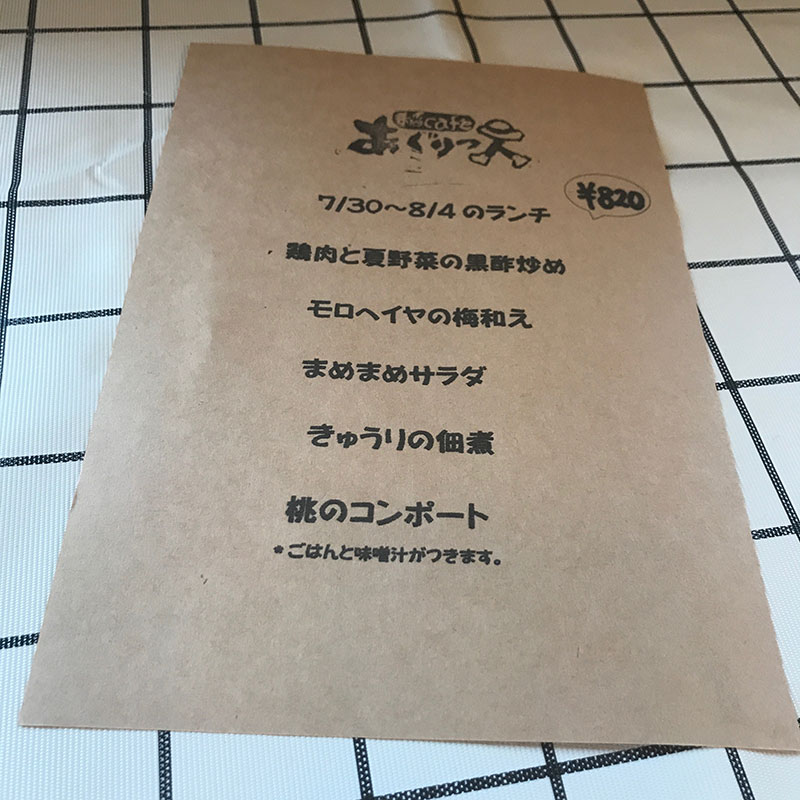 cafe
おぐりっ人
7/30～8/4のランチ
¥820
鶏肉と夏野菜の黒酢炒め
モロヘイヤの梅和え
まめまめサラダ
きゅうりの佃煮
桃のコンポート
*ごはんと味噌汁がつきます。